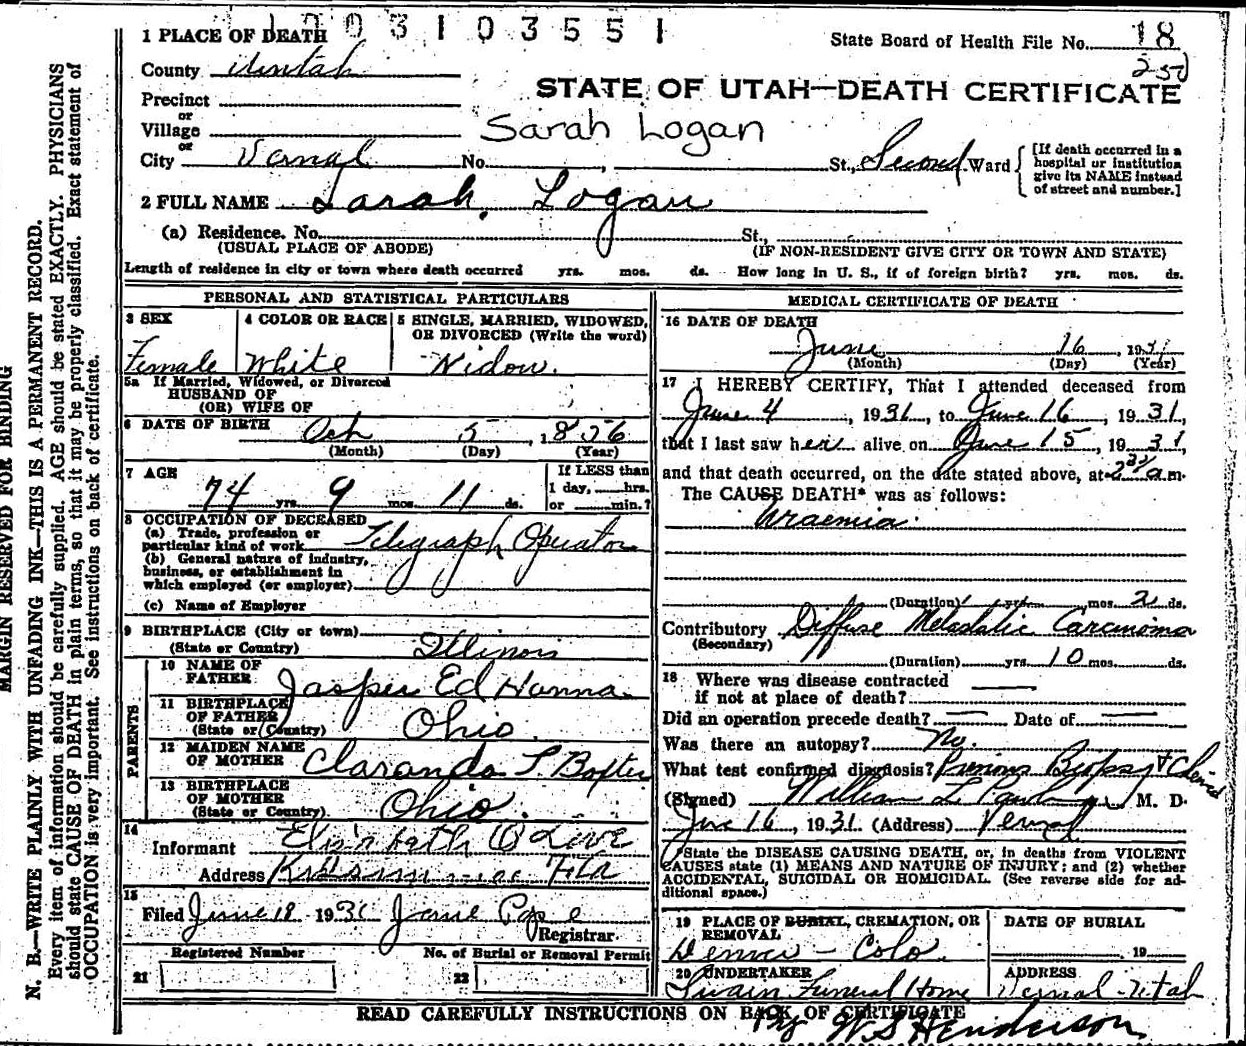 1003103551
1 PLACE OF DEATH
State Board of Health File No. 18
250
County Uintah
STATE OF UTAH—DEATH CERTIFICATE
Precinct
or
Village
Sarah Logan
or
City Vernal No. St., Second Ward
[If death occurred in a
hospital or institution
give its NAME instead
of street and number.]
2 FULL NAME Sarah Logan
(a) Residence. No. St.,
(USUAL PLACE OF ABODE) (IF NON-RESIDENT GIVE CITY OR TOWN AND STATE)
Length of residence in city or town where death occurred yrs. mos. ds. How long in U. S., if of foreign birth? yrs. mos. ds.
PERSONAL AND STATISTICAL PARTICULARS
3 SEX
Female
4 COLOR OR RACE
White
5 SINGLE, MARRIED, WIDOWED,
OR DIVORCED (Write the word)
Widow.
5a If Married, Widowed, or Divorced
HUSBAND OF
(OR) WIFE OF
6 DATE OF BIRTH Oct 5, 1856
(Month) (Day) (Year)
7 AGE
74 yrs. 9 mos. 11 ds.
If LESS than
1 day, hrs.
or min.?
8 OCCUPATION OF DECEASED
(a) Trade, profession or
particular kind of work Telegraph Operator
(b) General nature of industry,
business, or establishment in
which employed (or employer)
(c) Name of Employer
9 BIRTHPLACE (City or town)
(State or Country) Illinois
PARENTS
10 NAME OF
FATHER Jasper Ed Hanna
11 BIRTHPLACE
OF FATHER
(State or Country) Ohio.
12 MAIDEN NAME
OF MOTHER Claranda
13 BIRTHPLACE
OF MOTHER
(State or Country) Ohio.
14
Informant Elizabeth
Address Kissimmee Fla
15
Filed June 18 1931 Jane Pope
Registrar.
Registered Number No. of Burial or Removal Permit
21 22
MEDICAL CERTIFICATE OF DEATH
16 DATE OF DEATH
June 16, 1931
(Month) (Day) (Year)
17 I HEREBY CERTIFY, That I attended deceased from
June 4, 1931, to June 16, 1931,
that I last saw her alive on June 15, 1931
and that death occurred, on the date stated above, at a.m.
The CAUSE DEATH* was as follows:
Uraemia.
(Duration) yrs. mos. 2 ds.
Contributory Diffuse Metastatic Carcinoma
(Secondary)
(Duration) yrs. 10 mos. ds.
18 Where was disease contracted
if not at place of death?
Did an operation precede death? Date of
Was there an autopsy? No.
What test confirmed diagnosis? Previous Biopsy +
(Signed) William L M. D.
June 16, 1931 (Address) Vernal
*State the DISEASE CAUSING DEATH, or, in deaths from VIOLENT
CAUSES state (1) MEANS AND NATURE OF INJURY; and (2) whether
ACCIDENTAL, SUICIDAL OR HOMICIDAL. (See reverse side for ad-
ditional space.)
19 PLACE OF BURIAL, CREMATION, OR
REMOVAL
Denver - Colo.
DATE OF BURIAL
19
20 UNDERTAKER
Swain Funeral Home
ADDRESS
Vernal - Utah
READ CAREFULLY INSTRUCTIONS ON BACK OF CERTIFICATE
By W S Henderson
MARGIN RESERVED FOR BINDING
N. B.—WRITE PLAINLY WITH UNFADING INK—THIS IS A PERMANENT RECORD.
Every item of information should be carefully supplied. AGE should be stated EXACTLY. PHYSICIANS
should state CAUSE OF DEATH in plain terms, so that it may be properly classified. Exact statement of
OCCUPATION is very important. See instructions on back of certificate.